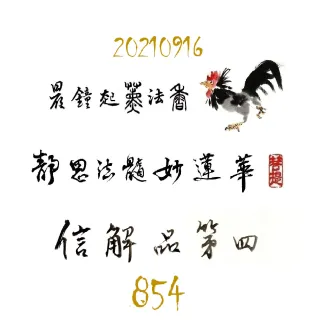 20210916
晨鐘起薰法香
靜思法髓妙蓮華
信解品第四
854